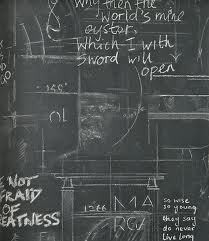 why then the
world's mine
oyster,
which I with
sword will
open
NOT
OF
EATNESS
1266
MA
so wise
so young
they say
do never
live long